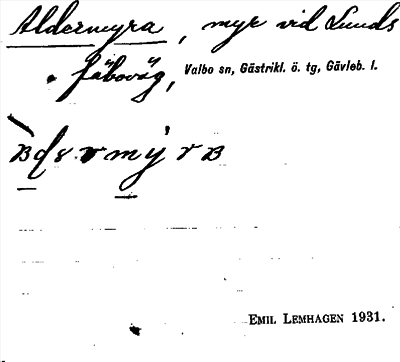 Aldermyra, myr vid Lunds
fäboväg, Valbo sn, Gästrikl. ö. tg, Gävleb. l.
EMIL LEMHAGEN 1931.